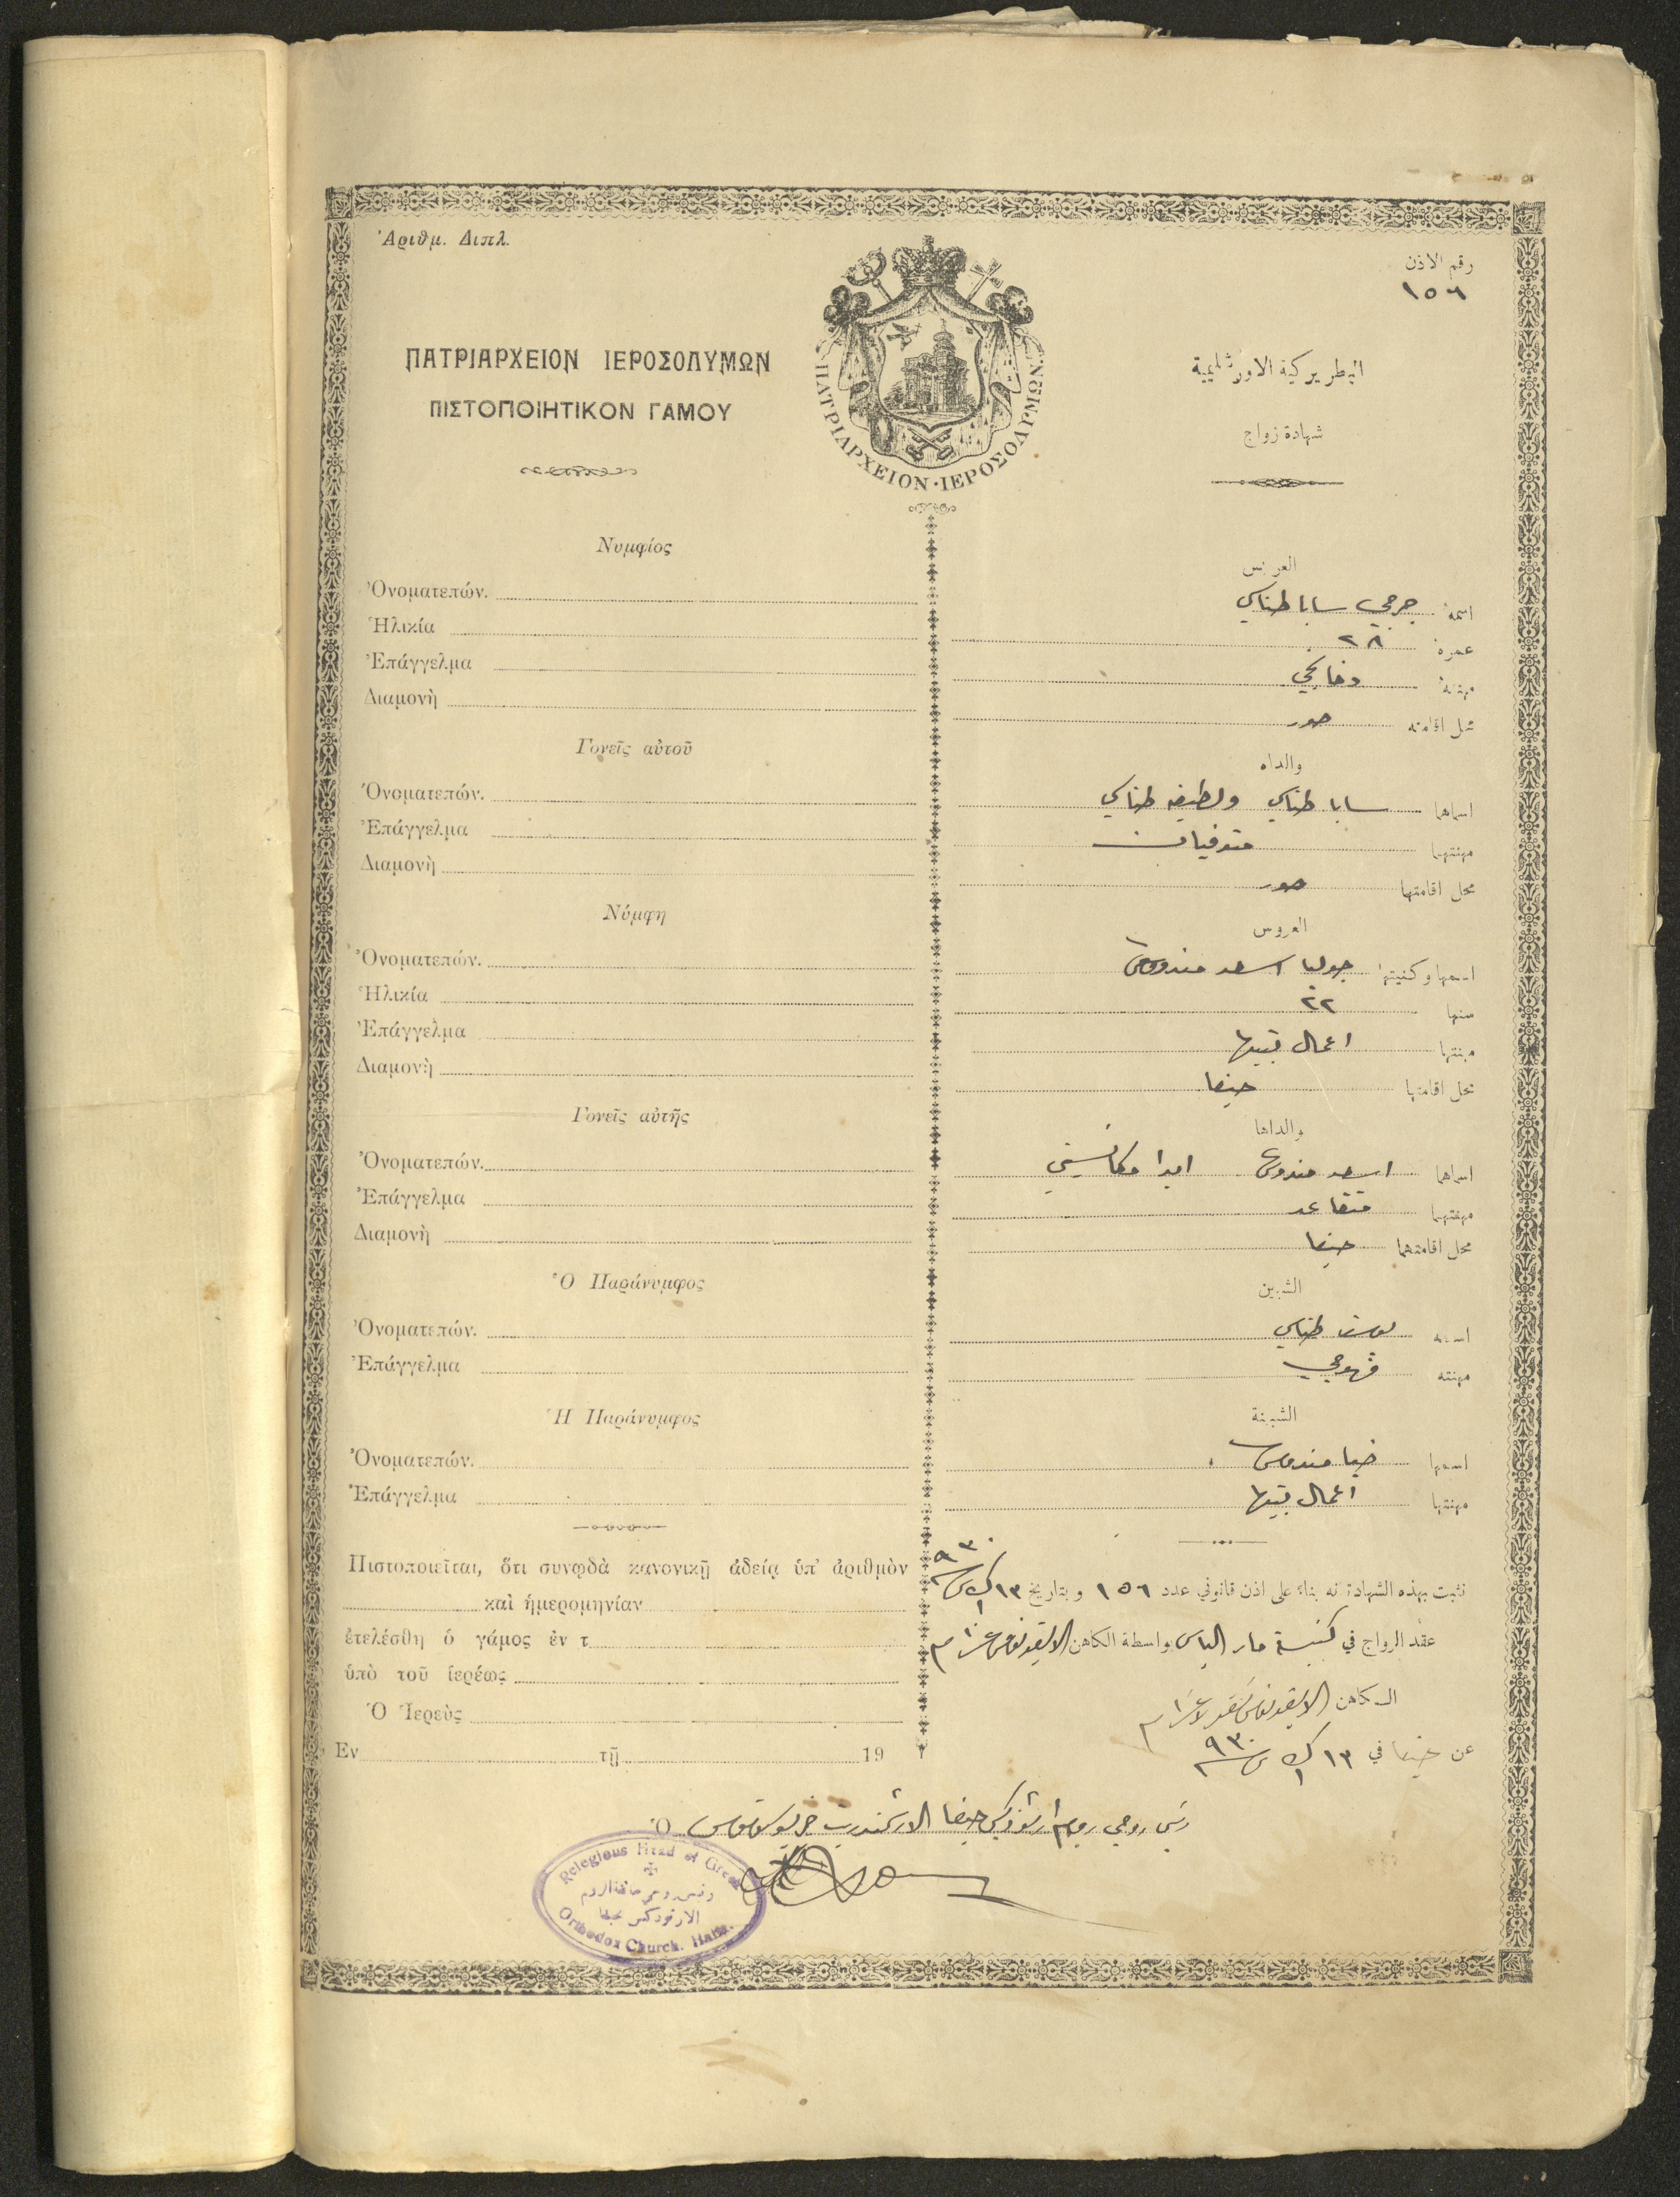 Ἀριθμ. Διπλ.
رقم الاذن
١٥٦
ΠΑΤΡΙΑΡΧΕΙΟΝ ΙΕΡΟΣΟΛΥΜΩΝ
ΠΙΣΤΟΠΟΙΗΤΙΚΟΝ ΓΑΜΟΥ
ΠΑΤΡΙΑΡΧΕΙΟΝ·ΙΕΡΟΣΟΛΥΜΩΝ
البطريركية الاورشليمية
شهادة زواج
Νυμφίος
Ὀνοματεπών.
Ἡλικία
Ἐπάγγελμα
Διαμονὴ
Γονεῖς αὐτοῦ
Ὀνοματεπών.
Ἐπάγγελμα
Διαμονὴ
Νύμφη
Ὀνοματεπών.
Ἡλικία
Ἐπάγγελμα
Διαμονὴ
Γονεῖς αὐτῆς
Ὀνοματεπών.
Ἐπάγγελμα
Διαμονὴ
Ὁ Παράνυμφος
Ὀνοματεπών.
Ἐπάγγελμα
Ἡ Παράνυμφος
Ὀνοματεπών.
Ἐπάγγελμα
Πιστοποιεῖται, ὅτι συνῳδὰ κανονικῇ ἀδείᾳ ὑπ' ἀριθμὸν
καὶ ἡμερομηνίαν
ἐτελέσθη ὁ γάμος ἐν τ
ὑπὸ τοῦ ἱερέως
Ὁ Ἱερεὺς
Ἐν τῇ 19
العريس
اسمه جرجي سابا طناسي
عمره ٢٨
مهنته
محل اقامته صور
والداه
اسماهما سابا طناسي ولطيفه طناسي
مهنتهما متوفيان
محل اقامتهما صور
العروس
اسمها وكنيتها جوليا اسعد
سنها ٢٢
مهنتها اعمال بيتها
محل اقامتها حيفا
والداها
اسماهما اسعد
مهنتهما متقاعد
محل اقامتهما حيفا
الشبين
اسمه طناسي
مهنته قهوجي
الشبينة
اسمها
مهنتها اعمال بيتها
نثبت بهذه الشهادة انه بناء على اذن قانوني عدد ١٥٦ وبتاريخ ١٣ ك١ سنة ٩٣٠
عقد الزواج في كنيسة مار الياس بواسطة الكاهن
الكاهن
عن حيفا في ١٣ ك١ سنة ٩٣٠
Ὁ رئيس روحي روم ارثوذكس حيفا الارشمندريت
Relegious Head of Greek
رئيس روحي طائفة الروم
الارثوذكس بحيفا
Orthodox Church. Haifa.